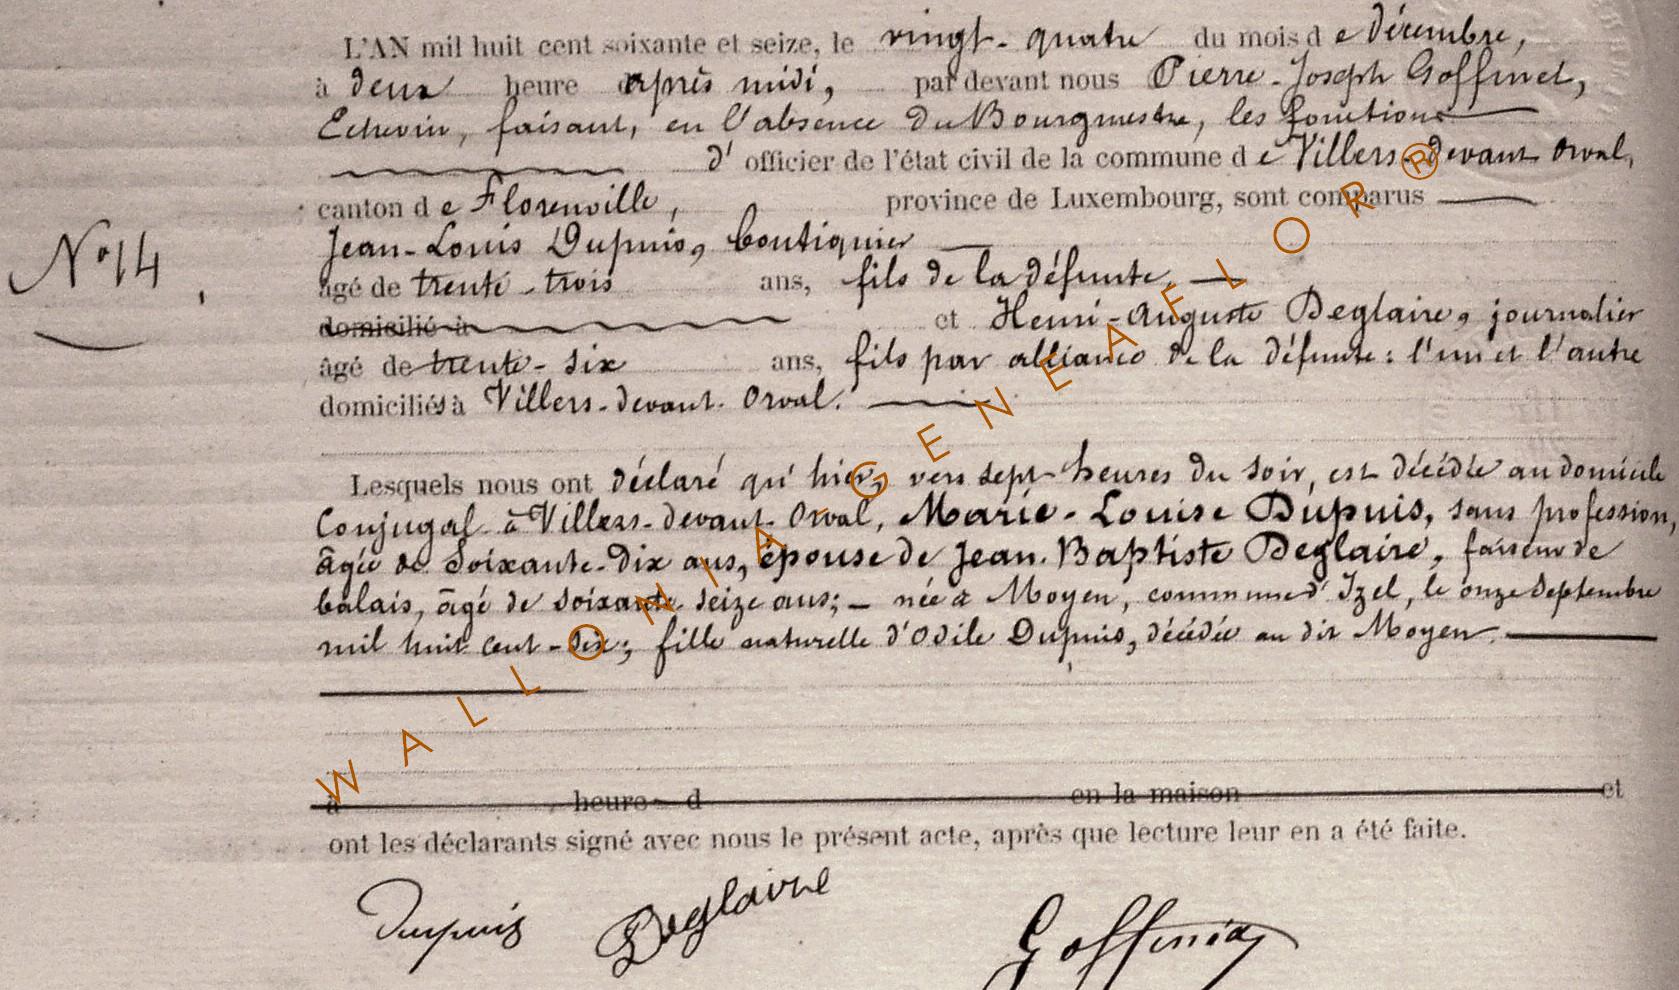 L'AN mil huit cent soixante et seize, le vingt-quatre du mois de Décembre,
à deux heure après midi, par devant nous Pierre-Joseph Goffinet,
Echevin, faisant, en l'absence du Bourgmestre, les fonctions
d'officier de l'état civil de la commune de Villers-devant Orval,
canton de Florenville, province de Luxembourg, sont comparus
Jean-Louis Dupuis, boutiquier
N° 14.
âgé de trente-trois ans, fils de la défunte,
domicilié à et Henri-Auguste Deglaire, journalier
âgé de trente-six ans, fils par alliance de la défunte: l'un et l'autre
domiciliés à Villers-devant-Orval.
Lesquels nous ont déclaré qu'hier, vers sept heures du soir, est décédée au domicile
Conjugal à Villers-devant-Orval, Marie-Louise Dupuis, sans profession,
âgée de Soixante-Dix ans, épouse de Jean-Baptiste Deglaire, faiseur de
balais, âgé de soixante seize ans; – née à Moyen, commune d'Izel, le onze Septembre
mil huit cent-six; fille naturelle d'Odile Dupuis, décédée au dit Moyen.
à heure d en la maison et
ont les déclarants signé avec nous le présent acte, après que lecture leur en a été faite.
Dupuis Deglaire Goffinet
WALLONIA - GENEAFLOR®